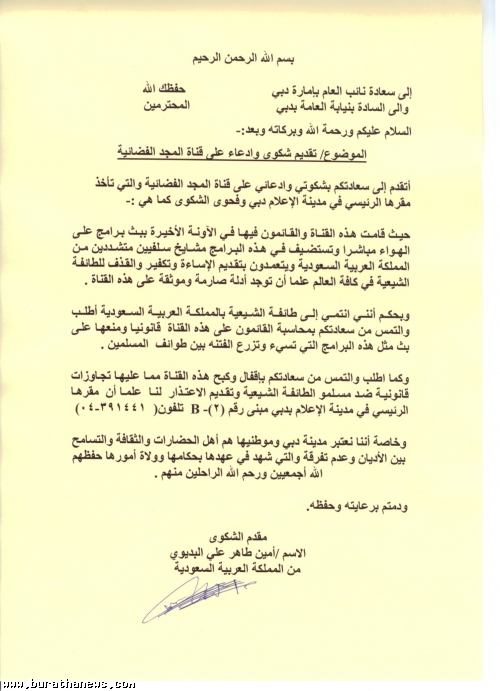 بسم الله الرحمن الرحيم
إلى سعادة نائب العام بإمارة دبي حفظك الله
والى السادة بنيابة العامة بدبي المحترمين
السلام عليكم ورحمة الله وبركاته وبعد:-
الموضوع/ تقديم شكوى وادعاء على قناة المجد الفضائية
أتقدم إلى سعادتكم بشكوتي وادعائي على قناة المجد الفضائية والتي تأخذ
مقرها الرئيسي في مدينة الإعلام دبي وفحوى الشكوى كما هي :-
حيث قامت هذه القناة والقائمون فيها في الآونة الأخيرة ببث برامج على
الهواء مباشرا وتستضيف في هذه البرامج مشايخ سلفيين متشددين من
المملكة العربية السعودية ويتعمدون بتقديم الإساءة وتكفير والقذف للطائفة
الشيعية في كافة العالم علما أن توجد أدلة صارمة وموثقة على هذه القناة .
وبحكم أنني انتمي إلى طائفة الشيعية بالمملكة العربية السعودية أطلب
والتمس من سعادتكم بمحاسبة القائمون على هذه القناة قانونيا ومنعها على
بث مثل هذه البرامج التي تسيء وتزرع الفتنه بين طوائف المسلمين .
وكما اطلب والتمس من سعادتكم بإقفال وكبح هذه القناة مما عليها تجاوزات
قانونية ضد مسلمو الطائفة الشيعية وتقديم الاعتذار لنا علما أن مقرها
الرئيسي في مدينة الإعلام بدبي مبنى رقم (٢)- B تلفون( ٣٩١٤٤١-٠٤)
وخاصة أننا نعتبر مدينة دبي وموطنيها هم أهل الحضارات والثقافة والتسامح
بين الأديان وعدم تفرقة والتي شهد في عهدها بحكامها وولاة أمورها حفظهم
الله أجمعيين ورحم الله الراحلين منهم .
ودمتم برعايته وحفظه.
مقدم الشكوى
الاسم /أمين طاهر علي البديوي
من المملكة العربية السعودية
www.burathanews.com